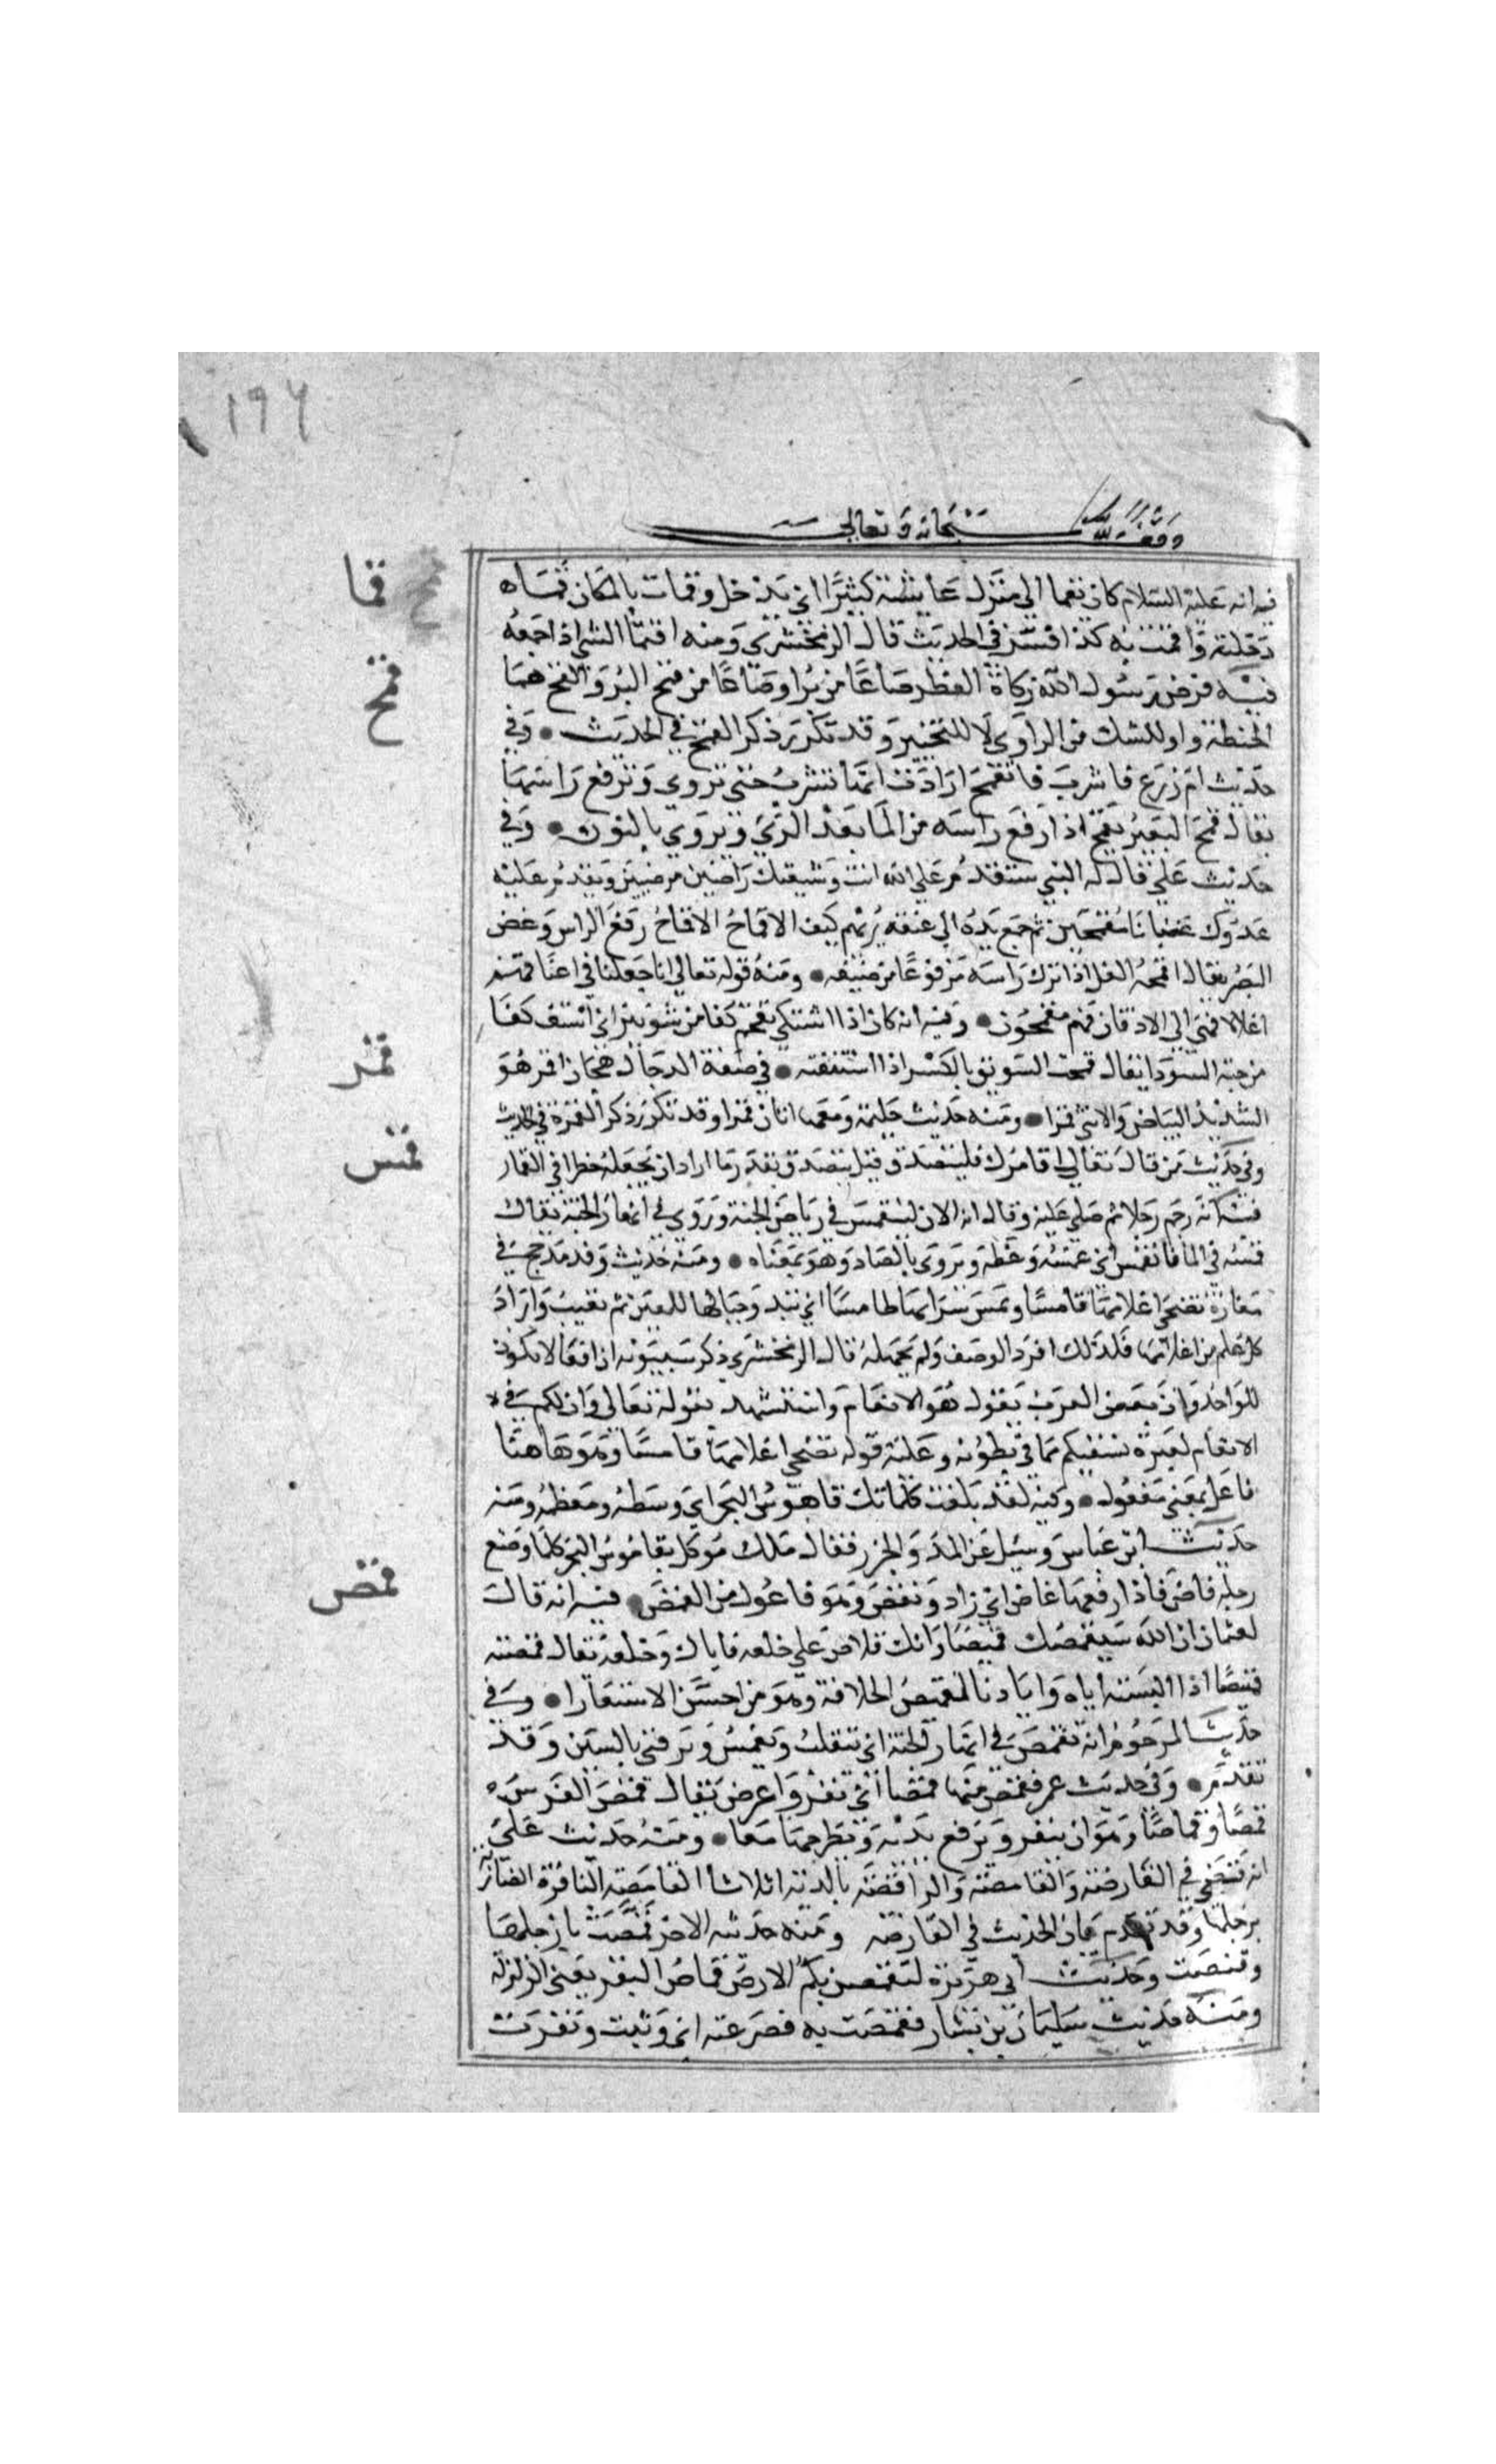 ١٩٦
وقف لله سبحانه وتعالى
قما
فيه انه عليه السلام كان يقما الى منزل عايشة كثيرا اي يدخل وقمات بالمكان قماه
دخلته واقمت به كذا فسر في الحديث قال الزمخشري ومنه اقتما الشي اذا جمعه
قمح
فيه فرض رسول الله زكاة الفطر صاعا من بر او صاعا من قمح البر والقمح هما
الحنطة واو للشك من الراوي لا للتخيير وقد تكرر ذكر القمح في الحديث وفي
حديث ام زرع فاشرب فاتقمح ارادت انها تشرب حتى تروى وترفع راسها
يقال قمح البعير يقمح اذا رفع راسه من الما بعد الري ويروى بالنون وفي
حديث علي قال له النبي ستقدم على الله انت وشيعتك راضين مرضيين ويقدم عليه
عدوك غضبانا مقمحين ثم جمع يده الى عنقه يريهم كيف الاقماح الاقماح رفع الراس وغض
البصر يقال اقمحه الغل اذا ترك راسه مرفوعا من ضيقه ومنه قوله تعالى انا جعلنا في اعناقهم
اغلالا فهي الى الاذقان فهم مقمحون وفيه انه كان اذا اشتكى تقمح كفا من شونيز اي استف كفا
من حبة السودا يقال قمحت السويق بالكسر اذا استففته في صفة الدجال هجان اقمر هو
قمر
الشديد البياض والانثى قمرا ومنه حديث حليمة ومعها اتان قمرا وقد تكرر ذكر القمرة في الحديث
وفي حديث من قال تعالى اقامرك فليتصدق قيل يتصدق بقدر ما اراد ان يجعله خطرا في القمار
قمس
فيه انه رجم رجلا ثم صلى عليه وقال انه الان لينقمس في رياض الجنة وروي في انهار الجنة يقال
قمسه في الما فانقمس اي غمسه وغطه ويروى بالصاد وهو بمعناه ومنه حديث وفد مذحج في
مفازة تضحي اعلامها قامسا ويمسي سرابها طامسا اي تبدو جبالها للعين ثم تغيب واراد
كل علم من اعلامها فلذلك افرد الوصف ولم يجمعه قال الزمخشري ذكر سيبويه ان افعالا يكون
للواحد وان بعض العرب يقول هو الانعام واستشهد بقوله تعالى وان لكم في
الانعام لعبرة نسقيكم مما في بطونه وعليه قوله تضحي اعلامها قامسا وهو هاهنا
فاعل بمعنى مفعول وفيه لقد بلغت كلماتك قاموس البحر اي وسطه ومعظمه ومنه
حديث ابن عباس وسيل عن المد والجزر فقال ملك موكل بقاموس البحر كلما وضع
قمص
رجله فاض فاذا رفعها غاض اي زاد ونقص وهو فاعول من القمص فيه انه قال
لعثمان ان الله سيقمصك قميصا وانك تلاص على خلعه فاياك وخلعه يقال قمصته
قميصا اذا البسته اياه واراد بالقميص الخلافة وهو من احسن الاستعارا وفي
حديث المرجوم انه يتقمص في انهار الجنة اي يتقلب وينغمس ويروى بالسين وقد
تقدم وفي حديث عمر فقمص منها قمصا اي نفر واعرض يقال قمص الفرس
قمصا وقماصا وهو ان ينفر ويرفع يديه ويطرحهما معا ومنه حديث علي
انه قضى في القارصة والقامصة والواقصة بالدية اثلاثا القامصة النافرة الضاربة
برجلها وقد تقدم بيان الحديث في القارصه ومنه حديثه الاخر قمصت بارجلها
وقنصت وحديث ابي هريرة لتقمصن بكم الارض قماص البقر يعني الزلزلة
ومنه حديث سليمان بن يسار فقمصت به فصرعته اي وثبت ونفرت